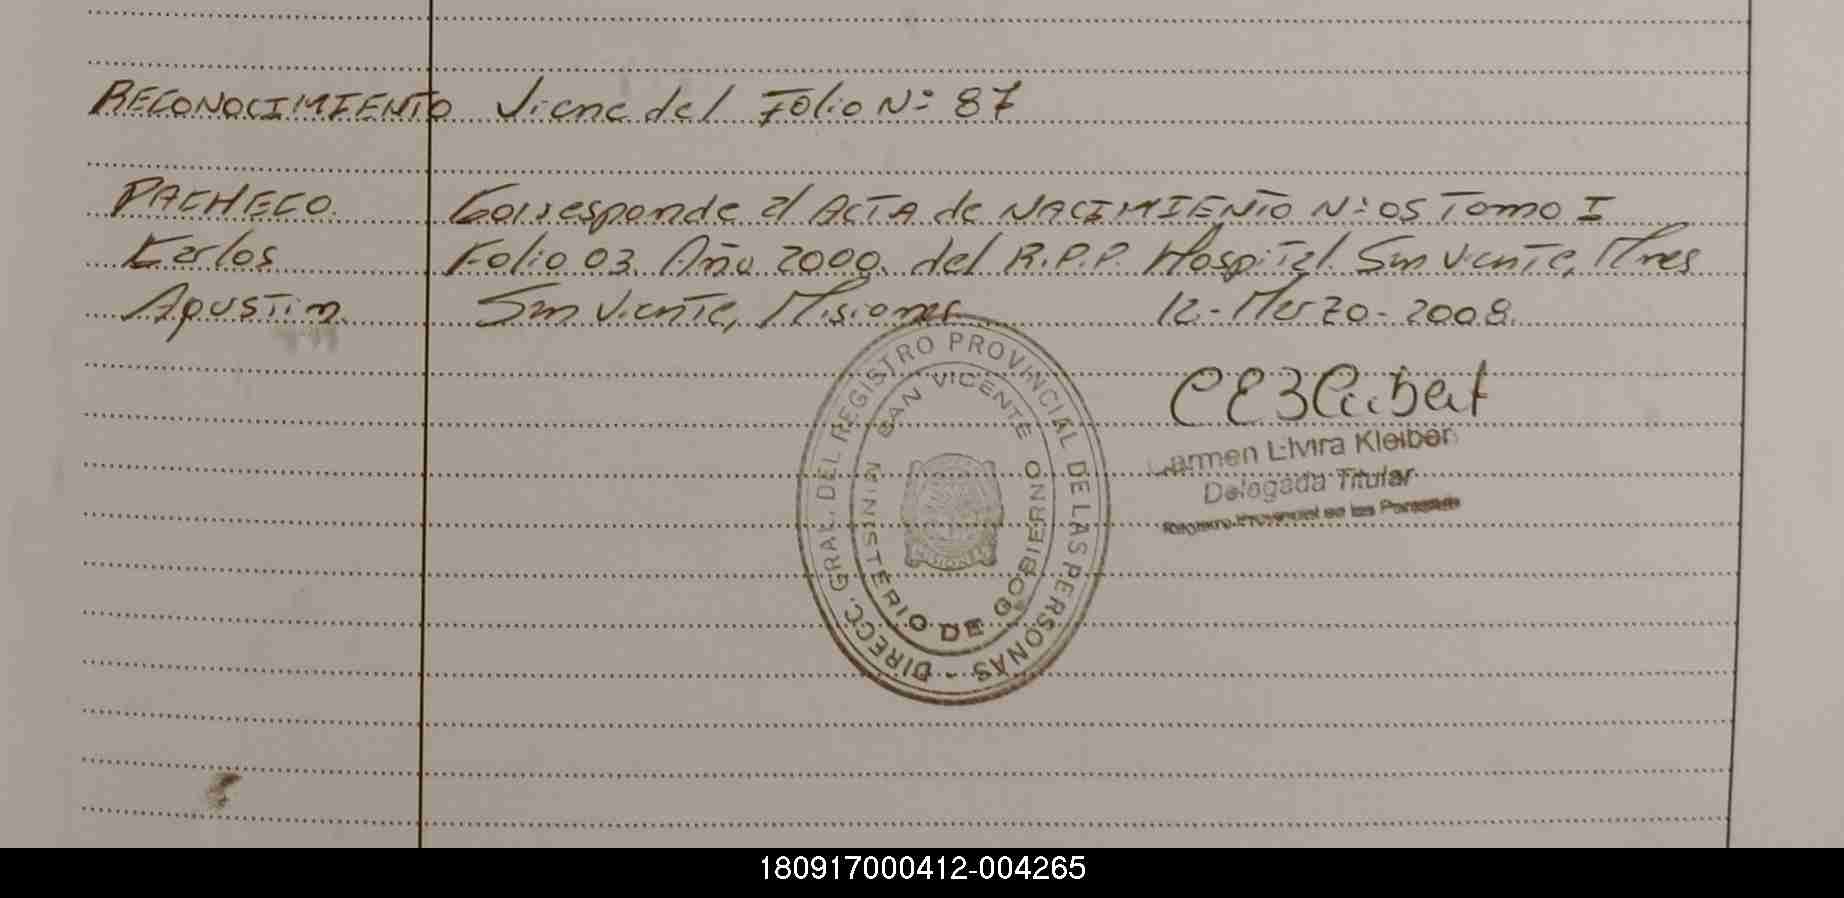 RECONOCIMIENTO Viene del Folio Nº 87
PACHECO Corresponde al ACTA de NACIMIENTO Nº 05 Tomo I
Karlos Folio 03 Año 2000 del R.P.P. Hospital San Vicente, Mnes
Agustin San Vicente, Misiones 12-Marzo-2008
DIRECC. GRAL. DEL REGISTRO PROVINCIAL DE LAS PERSONAS -
SAN VICENTE
MINISTERIO DE GOBIERNO
Carmen Elvira Kleiber
Delegada Titular
Registro Provincial de las Personas
180917000412-004265